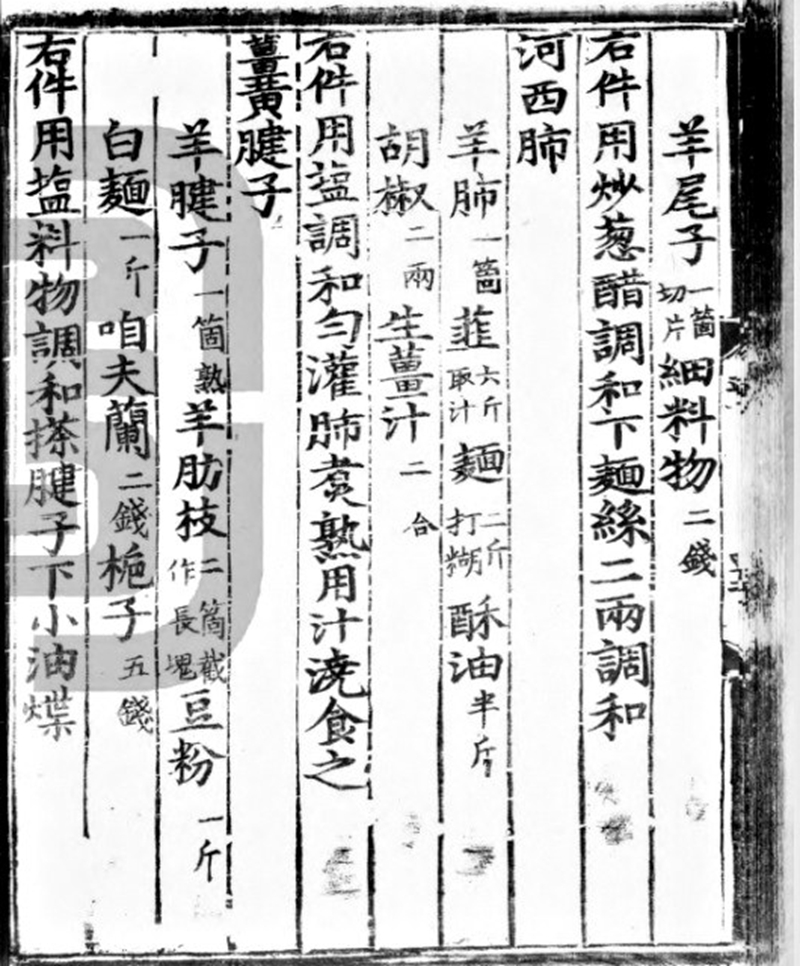 羊尾子一箇切片細料物二錢
右件用炒葱醋調和下麵絲二兩調和
河西肺
羊肺一箇韮六斤取汁麵二斤打糊酥油半斤
胡椒二兩生薑汁二合
右件用塩調和勻灌肺煑熟用汁澆食之
薑黄腱子
羊腱子一箇熟羊肋枝二箇截作長塊豆粉一斤
白麵一斤咱夫蘭二錢梔子五錢
右件用塩料物調和搽腱子下小油煠